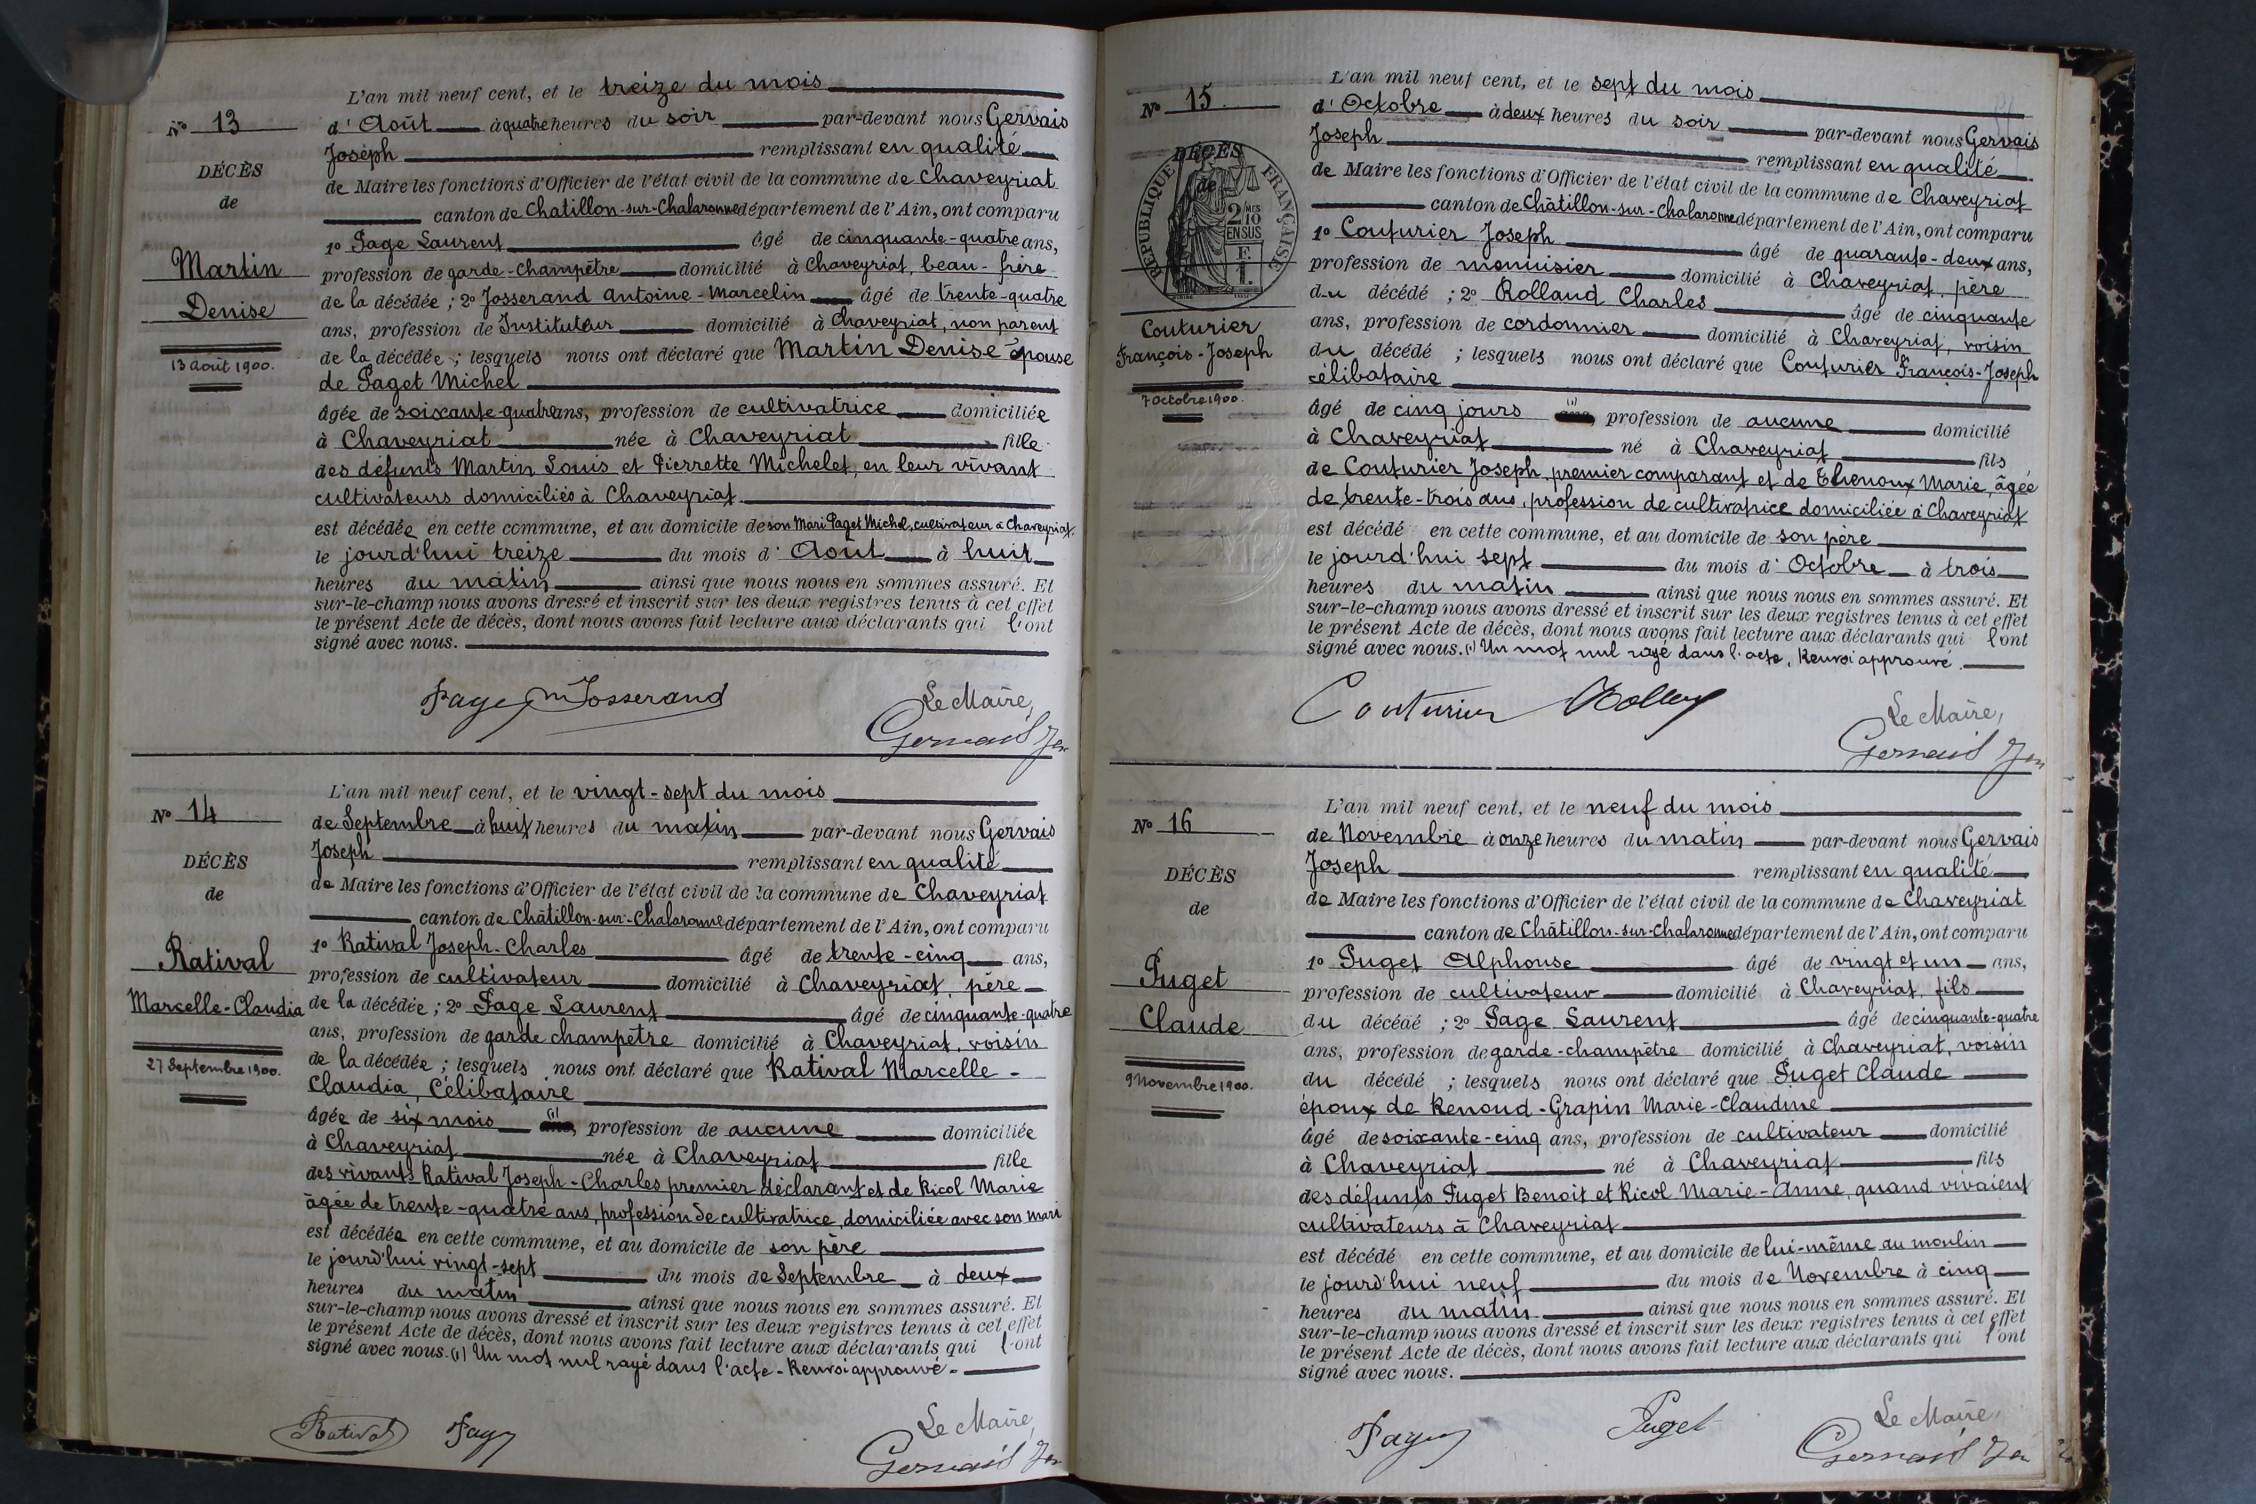 L'an mil neuf cent, et le treize du mois
N° 13
d'Août à quatre heures du soir par-devant nous Gervais
Joseph remplissant en qualité
DÉCÈS
de Maire les fonctions d'Officier de l'état civil de la commune de Chaveyriat
de
canton de Chatillon-sur-Chalaronne département de l'Ain, ont comparu
1° Page Laurent âgé de cinquante-quatre ans,
Martin
profession de garde-champêtre domicilié à Chaveyriat, beau-frère
de la décédée ; 2° Josserand Antoine-Marcelin âgé de trente-quatre
Denise
ans, profession de Instituteur domicilié à Chaveyriat, non parent
de la décédée ; lesquels nous ont déclaré que Martin Denise épouse
13 Août 1900.
de Paget Michel
âgée de soixante-quatre ans, profession de cultivatrice domiciliée
à Chaveyriat née à Chaveyriat fille
des défunts Martin Louis et Pierrette Michelet, en leur vivant
cultivateurs domiciliés à Chaveyriat.
est décédée en cette commune, et au domicile de son Mari Paget Michel, cultivateur à Chaveyriat.
le jourd'hui treize du mois d'Août à huit
heures du matin ainsi que nous nous en sommes assuré. Et
sur-le-champ nous avons dressé et inscrit sur les deux registres tenus à cet effet
le présent Acte de décès, dont nous avons fait lecture aux déclarants qui l'ont
signé avec nous.
Page m Josserand Le Maire,
Gervais Jh
L'an mil neuf cent, et le vingt-sept du mois
N° 14
de Septembre à huit heures du matin par-devant nous Gervais
Joseph remplissant en qualité
DÉCÈS
de Maire les fonctions d'Officier de l'état civil de la commune de Chaveyriat
de
canton de Châtillon-sur-Chalaronne département de l'Ain, ont comparu
1° Ratival Joseph-Charles âgé de trente-cinq ans,
Ratival
profession de cultivateur domicilié à Chaveyriat, père
Marcelle-Claudia
de la décédée ; 2° Page Laurent âgé de cinquante-quatre
ans, profession de garde champêtre domicilié à Chaveyriat, voisin
27 Septembre 1900.
de la décédée ; lesquels nous ont déclaré que Ratival Marcelle-
Claudia, Célibataire
âgée de six mois (1) profession de aucune domiciliée
à Chaveyriat née à Chaveyriat fille
des vivants Ratival Joseph-Charles premier déclarant et de Ricol Marie
âgée de trente-quatre ans, profession de cultivatrice, domiciliée avec son mari
est décédée en cette commune, et au domicile de son père
le jourd'hui vingt-sept du mois de Septembre à deux
heures du matin ainsi que nous nous en sommes assuré. Et
sur-le-champ nous avons dressé et inscrit sur les deux registres tenus à cet effet
le présent Acte de décès, dont nous avons fait lecture aux déclarants qui l'ont
signé avec nous. (1) Un mot nul rayé dans l'acte - Renvoi approuvé -
Ratival Page Le Maire,
Gervais Jh
L'an mil neuf cent, et le sept du mois
N° 15
d'Octobre à deux heures du soir par-devant nous Gervais
Joseph remplissant en qualité
DÉCÈS
de
RÉPUBLIQUE FRANÇAISE
2/10 MES
EN SUS
F.
1.
de Maire les fonctions d'Officier de l'état civil de la commune de Chaveyriat
canton de Châtillon-sur-Chalaronne département de l'Ain, ont comparu
1° Couturier Joseph âgé de quarante-deux ans,
profession de menuisier domicilié à Chaveyriat, père
du décédé ; 2° Rolland Charles âgé de cinquante
Couturier
ans, profession de cordonnier domicilié à Chaveyriat, voisin
François-Joseph
du décédé ; lesquels nous ont déclaré que Couturier François-Joseph
7 Octobre 1900.
célibataire
âgé de cinq jours (1) profession de aucune domicilié
à Chaveyriat né à Chaveyriat fils
de Couturier Joseph, premier comparant et de Thenoux Marie, âgée
de trente-trois ans, profession de cultivatrice domiciliée à Chaveyriat
est décédé en cette commune, et au domicile de son père
le jourd'hui sept du mois d'Octobre à trois
heures du matin ainsi que nous nous en sommes assuré. Et
sur-le-champ nous avons dressé et inscrit sur les deux registres tenus à cet effet
le présent Acte de décès, dont nous avons fait lecture aux déclarants qui l'ont
signé avec nous. (1) Un mot nul rayé dans l'acte, Renvoi approuvé.
Couturier Le Maire,
Gervais Jh
L'an mil neuf cent, et le neuf du mois
N° 16
de Novembre à onze heures du matin par-devant nous Gervais
Joseph remplissant en qualité
DÉCÈS
de Maire les fonctions d'Officier de l'état civil de la commune de Chaveyriat
de
canton de Châtillon-sur-Chalaronne département de l'Ain, ont comparu
1° Puget Alphonse âgé de vingt et un ans,
Puget
profession de cultivateur domicilié à Chaveyriat, fils
Claude
du décédé ; 2° Page Laurent âgé de cinquante-quatre
ans, profession de garde-champêtre domicilié à Chaveyriat, voisin
9 Novembre 1900.
du décédé ; lesquels nous ont déclaré que Puget Claude
époux de Renoud-Grapin Marie-Claudine
âgé de soixante-cinq ans, profession de cultivateur domicilié
à Chaveyriat né à Chaveyriat fils
des défunts Puget Benoit et Ricol Marie-Anne, quand vivaient
cultivateurs à Chaveyriat
est décédé en cette commune, et au domicile de lui-même au moulin
le jourd'hui neuf du mois de Novembre à cinq
heures du matin ainsi que nous nous en sommes assuré. Et
sur-le-champ nous avons dressé et inscrit sur les deux registres tenus à cet effet
le présent Acte de décès, dont nous avons fait lecture aux déclarants qui l'ont
signé avec nous.
Page Puget Le Maire,
Gervais Jh